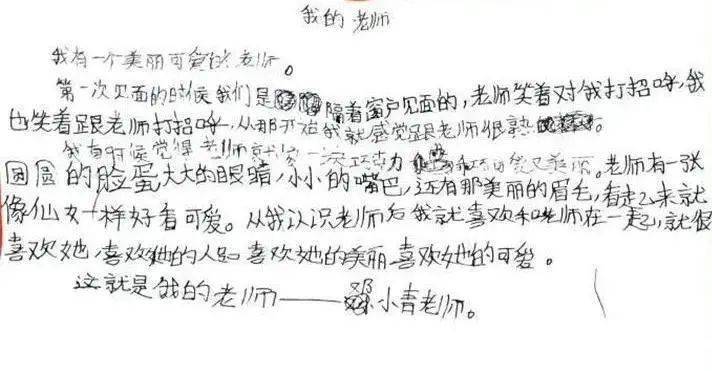 我的老师
我有一个美丽可爱的老师。
第一次见面的时候我们是隔着窗户见面的,老师笑着对我打招呼,我
也笑着跟老师打招呼,从那开始我就感觉跟老师很熟。
我有时候觉得老师就像一块巧克力 可爱又美丽。老师有一张
团圆的脸蛋大大的眼睛,小小的嘴巴,还有那美丽的眉毛,看起来就
像仙女一样好看可爱。从我认识老师后我就喜欢和老师在一起,就很
喜欢她,喜欢她的人品 喜欢她的美丽 喜欢她的可爱。
这就是我的老师——邓小青老师。